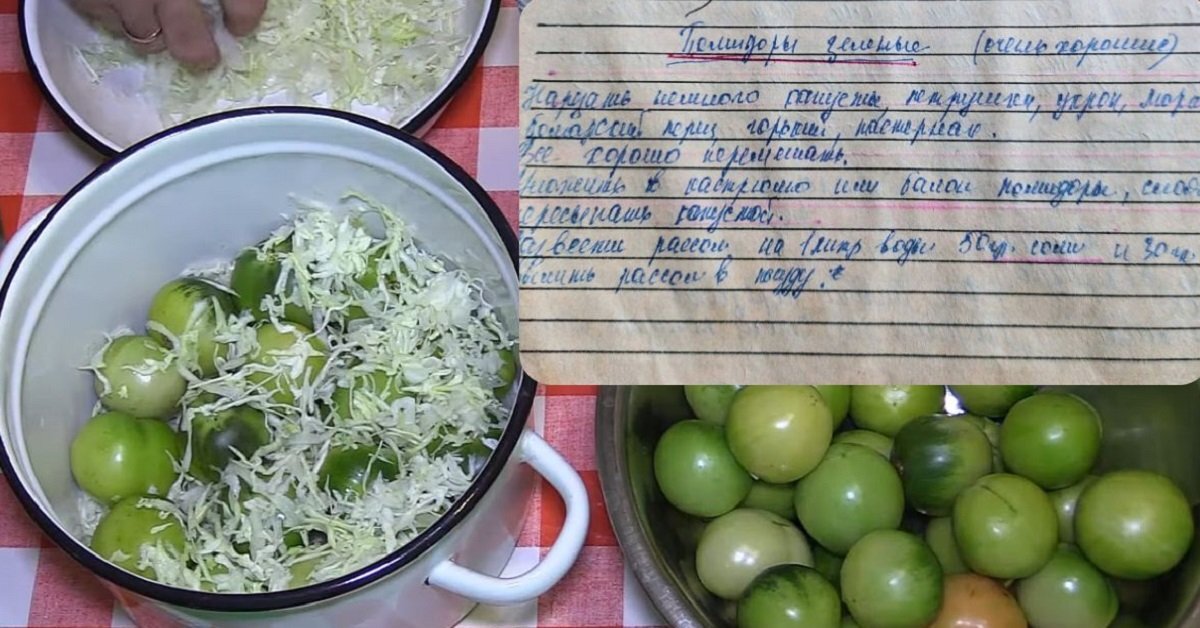 Помидоры зеленые (очень хорошие)
Нарезать немного капусты, петрушки, укроп, морк
болгарский перец горький, пастернак.
Все хорошо перемешать.
ложить в кастрюлю или балон помидоры, слов
ересыпать капустой.
азвести рассол на 1 литр воды 50 гр. соли и 30 гр
влить рассол в посуду.